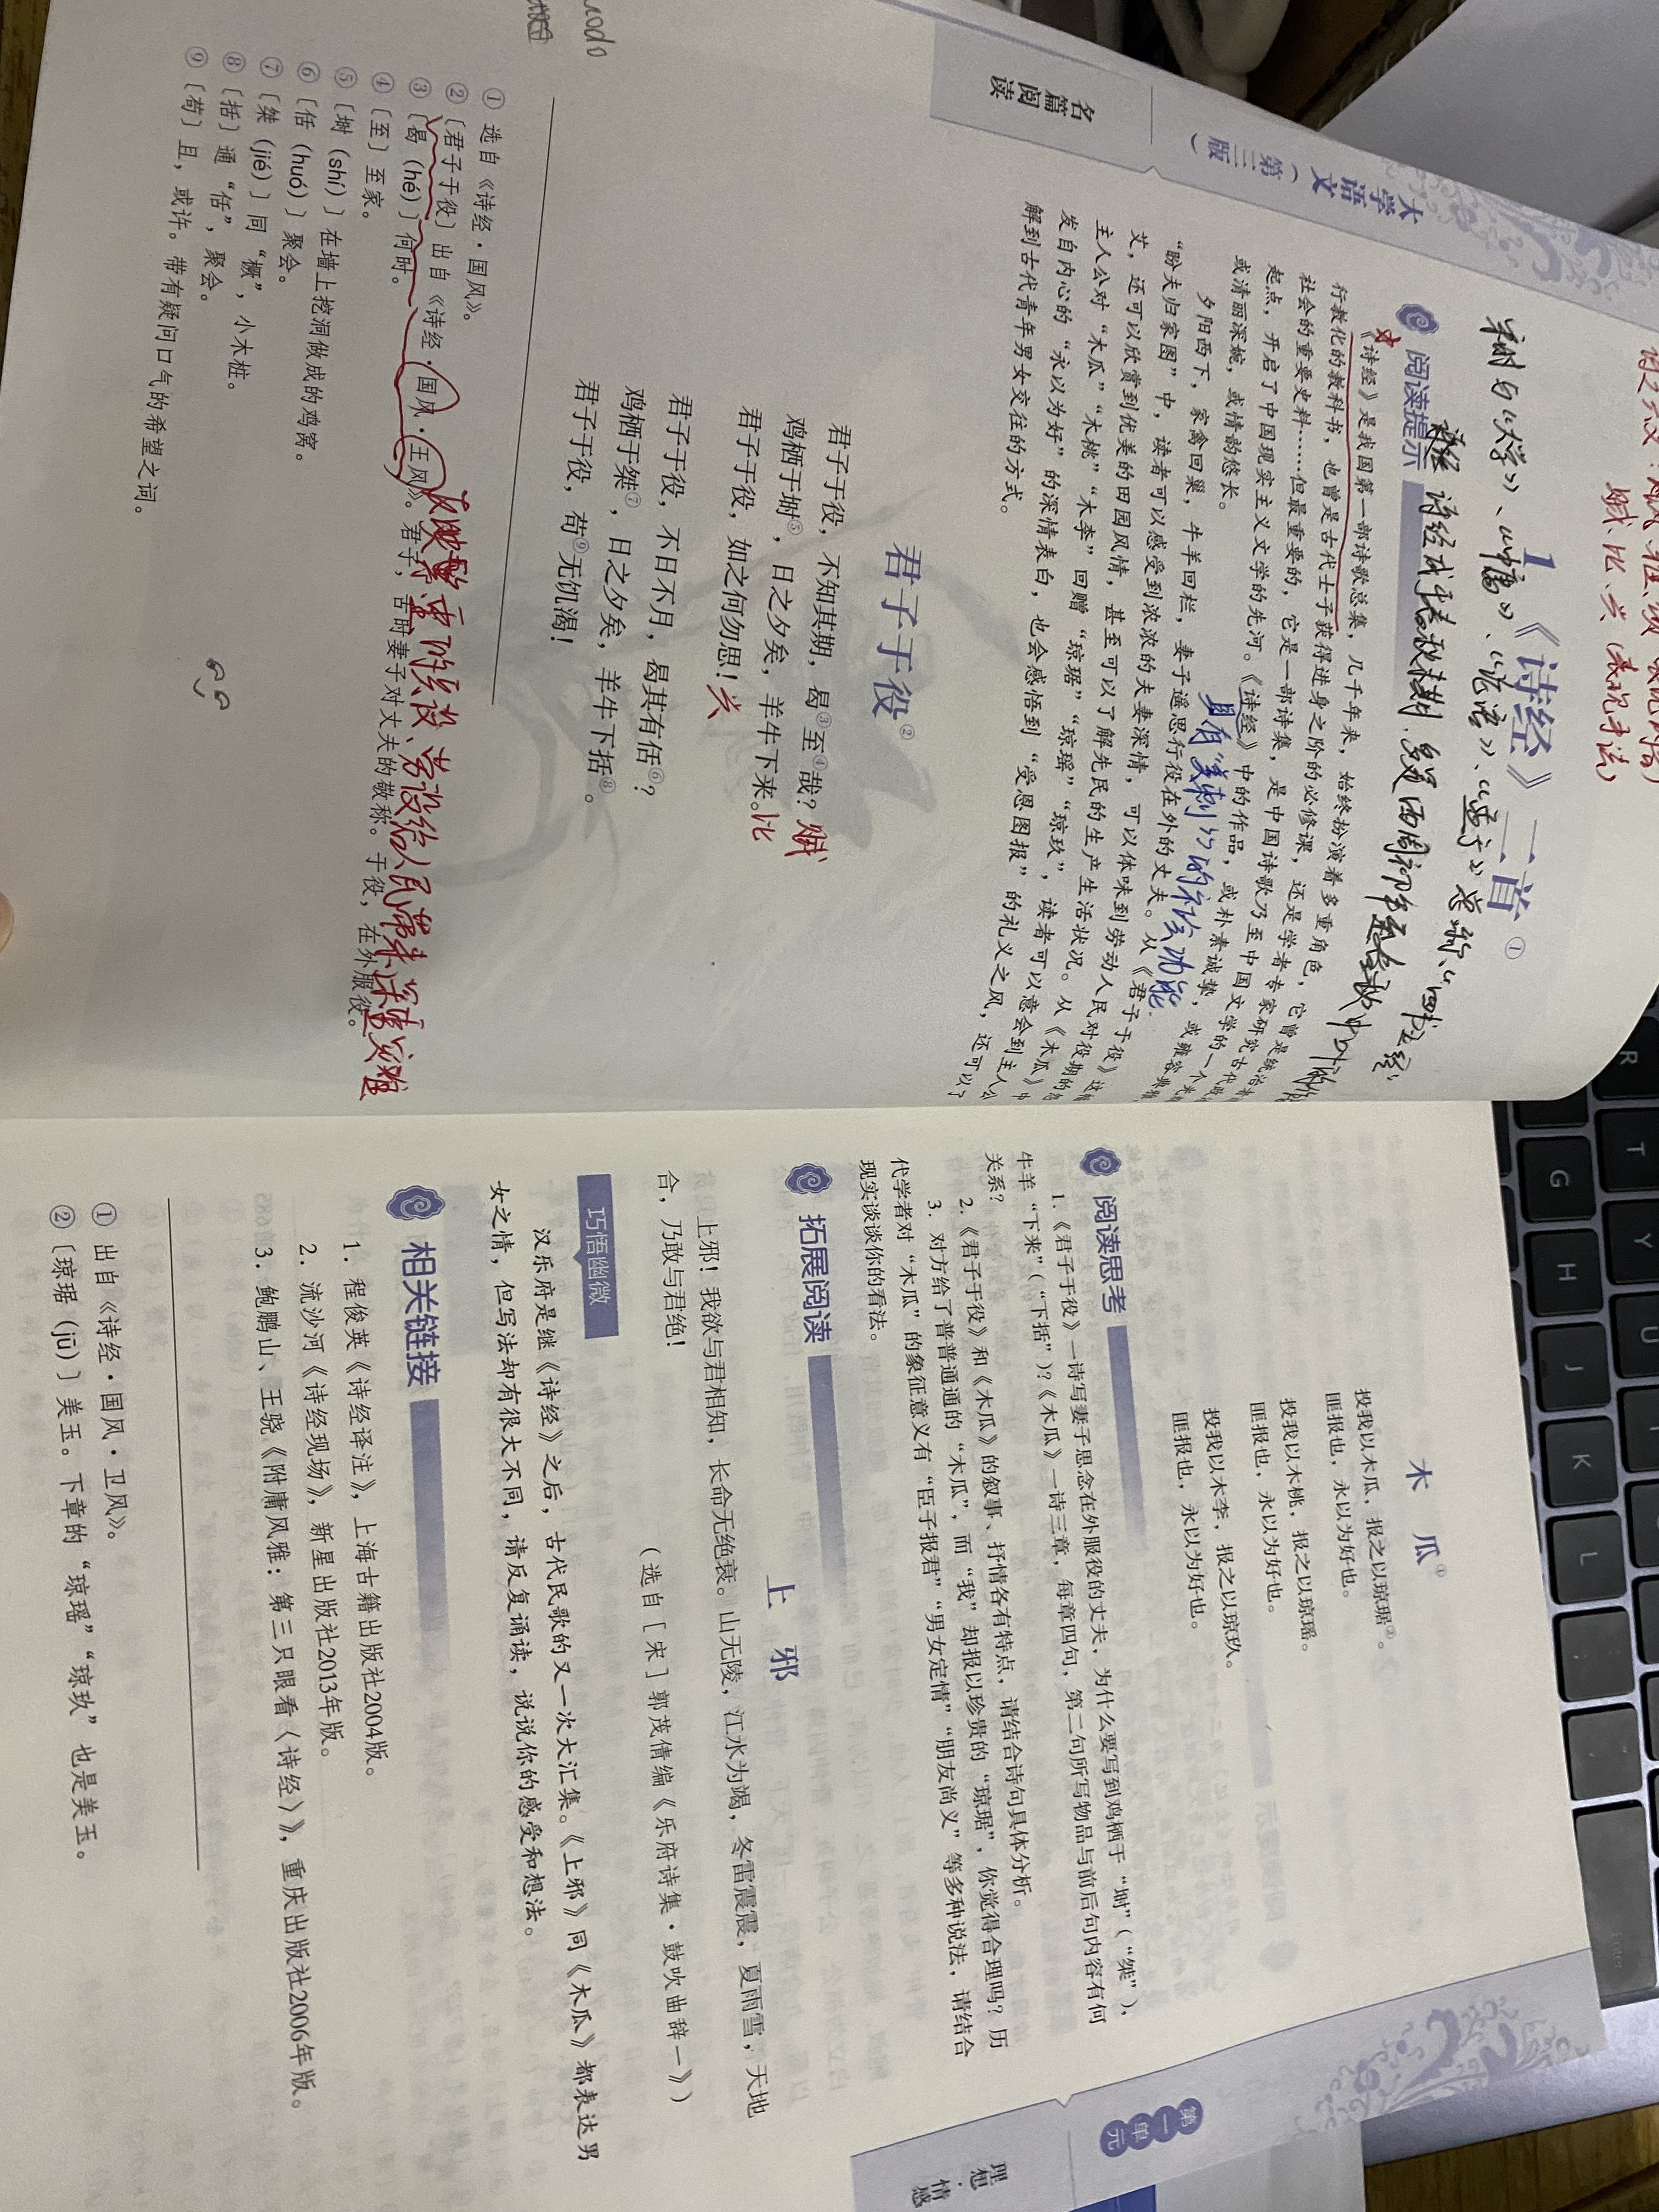 大学语文（第三版）
名篇阅读
的六义：风、雅、颂（
赋、比、兴（表现手法）
1《诗经》二首①
《大学》、《中庸》、《论语》、《孟子》
诗经
阅读提示
《诗经》是我国第一部诗歌总集，几千年来，始终扮演着多重角色，它曾是统治
行教化的教科书，也曾是古代士子获得进身之阶的必修课，还是学者专家研究古代
社会的重要史料……但最重要的，它是一部诗集，是中国诗歌乃至中国文学的一个光
起点，开启了中国现实主义文学的先河。《诗经》中的作品，或朴素诚挚，或雍容典雅
或清丽深婉，或情韵悠长。
具有“美刺”的社会功能
夕阳西下，家禽回巢，牛羊回栏，妻子遥思行役在外的丈夫。从《君子于役》这
“盼夫归家图”中，读者可以感受到浓浓的夫妻深情，可以体味到劳动人民对役期的
艾，还可以欣赏到优美的田园风情，甚至可以了解先民的生产生活状况。从《木瓜》中
主人公对“木瓜”“木桃”“木李”回赠“琼琚”“琼瑶”“琼玖”，读者可以意会到主人公
发自内心的“永以为好”的深情表白，也会感悟到“受恩图报”的礼义之风，还可以了
解到古代青年男女交往的方式。
君子于役②
君子于役，不知其期，曷③至④哉？赋
鸡栖于埘⑤，日之夕矣，羊牛下来。比
君子于役，如之何勿思！兴
君子于役，不日不月，曷其有佸⑥？
鸡栖于桀⑦，日之夕矣，羊牛下括⑧。
君子于役，苟⑨无饥渴！
① 选自《诗经·国风》。
② 〔君子于役〕出自《诗经·国风·王风》。君子，古时妻子对丈夫的敬称。于役，在外服役。
③ 〔曷（hé）〕何时。
④ 〔至〕至家。
⑤ 〔埘（shí）〕在墙上挖洞做成的鸡窝。
⑥ 〔佸（huó）〕聚会。
⑦ 〔桀（jié）〕同“橛”，小木桩。
⑧ 〔括〕通“佸”，聚会。
⑨ 〔苟〕且，或许。带有疑问口气的希望之词。
第一单元
理想·情感
木 瓜①
投我以木瓜，报之以琼琚②。
匪报也，永以为好也。
投我以木桃，报之以琼瑶。
匪报也，永以为好也。
投我以木李，报之以琼玖。
匪报也，永以为好也。
阅读思考
1.《君子于役》一诗写妻子思念在外服役的丈夫，为什么要写到鸡栖于“埘”（“桀”），
牛羊“下来”（“下括”）？《木瓜》一诗三章，每章四句，第二句所写物品与前后句内容有何
关系？
2.《君子于役》和《木瓜》的叙事、抒情各有特点，请结合诗句具体分析。
3. 对方给了普普通通的“木瓜”，而“我”却报以珍贵的“琼琚”，你觉得合理吗？历
代学者对“木瓜”的象征意义有“臣子报君”“男女定情”“朋友尚义”等多种说法，请结合
现实谈谈你的看法。
拓展阅读
上 邪
上邪！我欲与君相知，长命无绝衰。山无陵，江水为竭，冬雷震震，夏雨雪，天地
合，乃敢与君绝！
（选自［宋］郭茂倩编《乐府诗集·鼓吹曲辞一》）
巧悟幽微
汉乐府是继《诗经》之后，古代民歌的又一次大汇集。《上邪》同《木瓜》都表达男
女之情，但写法却有很大不同，请反复诵读，说说你的感受和想法。
相关链接
1. 程俊英《诗经译注》，上海古籍出版社2004版。
2. 流沙河《诗经现场》，新星出版社2013年版。
3. 鲍鹏山、王骁《附庸风雅：第三只眼看〈诗经〉》，重庆出版社2006年版。
① 出自《诗经·国风·卫风》。
② 〔琼琚（jū）〕美玉。下章的“琼瑶”“琼玖”也是美玉。
R
T
Y
U
G
H
J
K
L